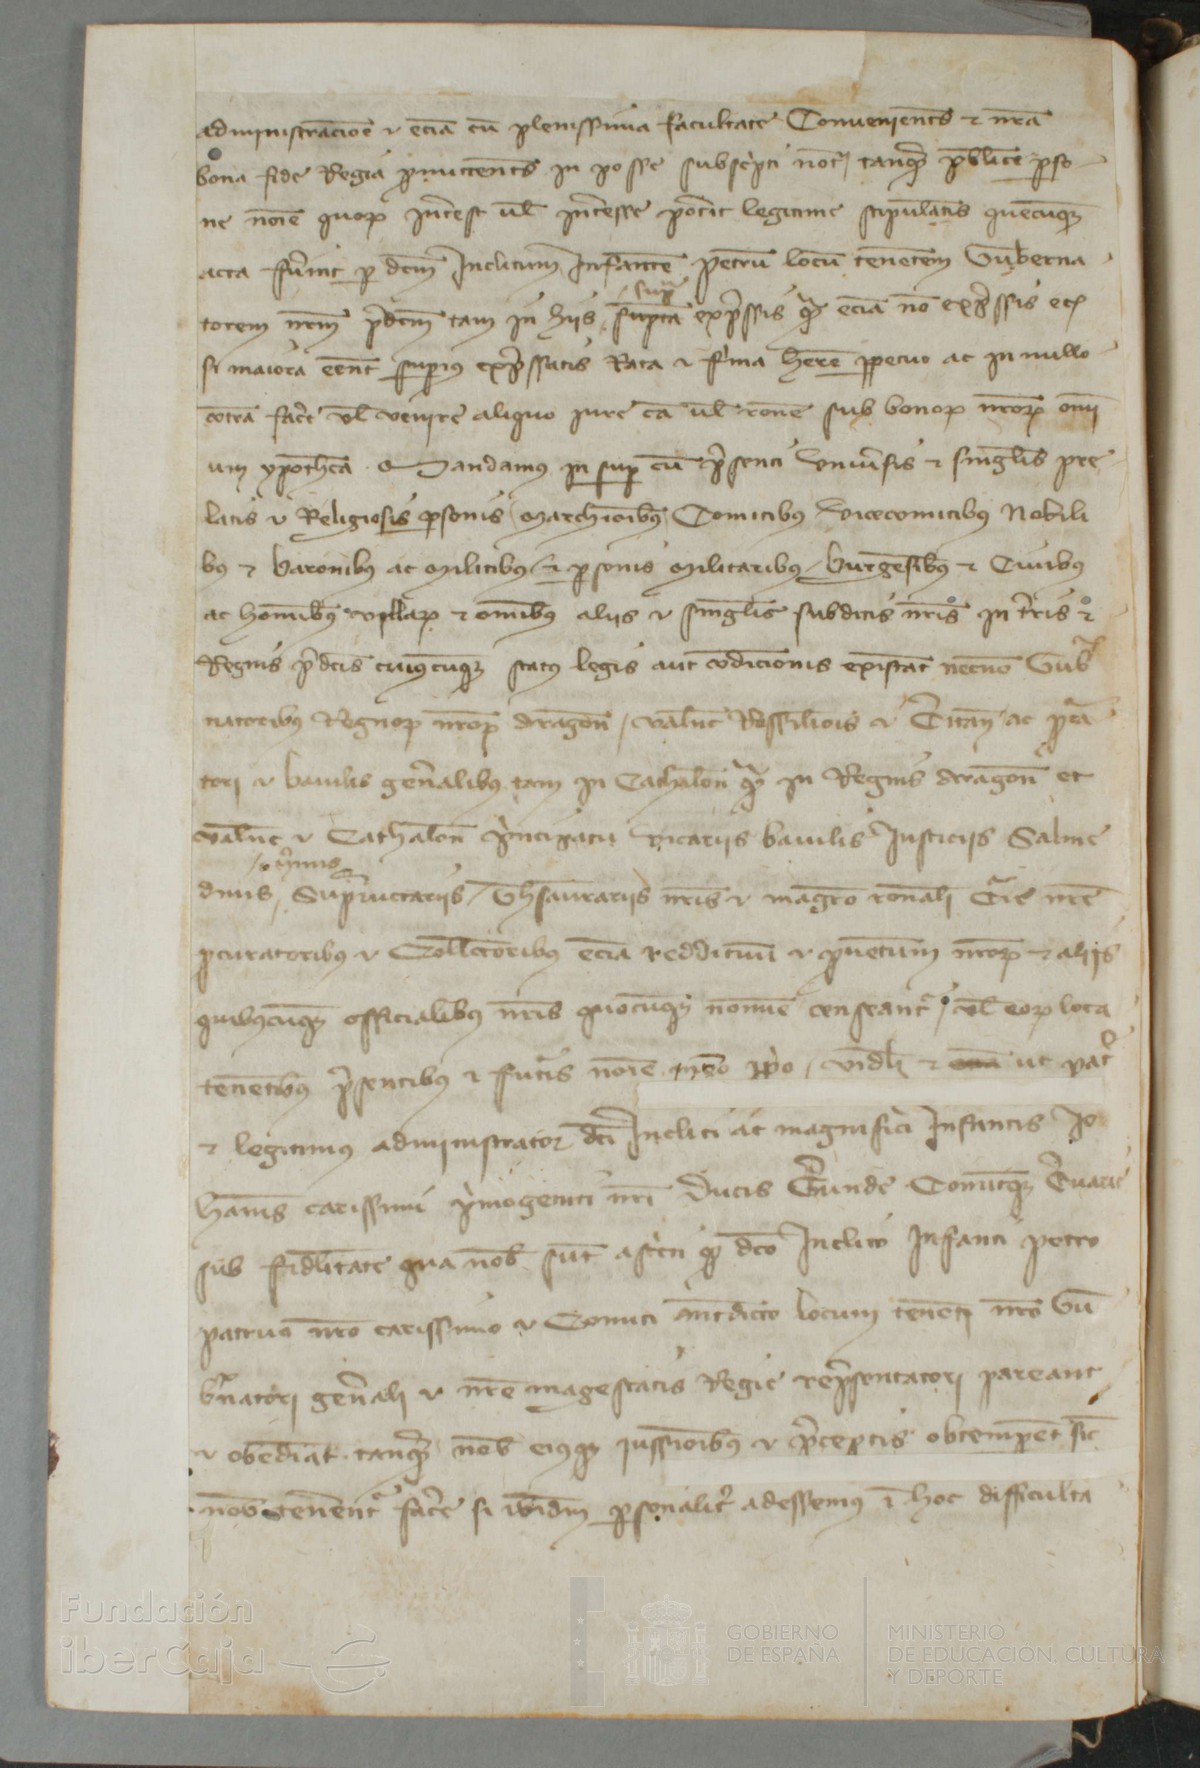 administracioe et ecia cu plenissima facultate Convenients et nrã
bona fide Regia pmittents in posse subscpti not tanqȝ publice pso
ne noie quoȝ interest vl interesse poterit legitime stipulatis quecuqȝ
acta fuerint p dcm Inclitum Infante petru locu tenetem Guberna
supra
torem nrm pdcm tam in hiis expssis qȝ ecia no expssis eci
si maiora eent supius expssatis Rata et firma here ppetuo ac in nullo
cotra facere vl venire aliquo iure ca vl rone sub bonoȝ nroȝ omi
um ypotheca Mandamus in sup cu psenti Univsis et singlis pre
latis et Religiosis psonis marchioibus Comitibus vicecomitibus Nobili
bus et baronibus ac militibus et psonis militaribus burgesibus et Civibus
ac hominibus villaȝ et omibus aliis et singlis subditis nris in tris et
Regnis pdcis cuiuscuqȝ status legis aut codicionis existat necno Gub
natoribus Regnoȝ nroȝ Aragon Valenc Rossilionis et Citan ac pcura
tori et baiulis genalibus tam in Cathalon qȝ in Regnis Aragon et
Valenc et Cathalon pncipatu vicariis baiulis Justiciis Salme
dinis Supiunctariis Thesaurariis nris et magro ronali Curie nre
pcuratoribus et Collectoribus ecia reddituu et pventuum nroȝ et aliis
quibuscuqȝ officialibus nris quocuqȝ nomine censeant vl eoȝ loca
tenetibus psentibus et futuris noie nro ppo vidlȝ et ut pater
et legitimus administrator dci Incliti ac magnifici Infantis Jo
hanis carissimi pmogeniti nri Ducis Gerunde Comitisqȝ Cervarie
sub fidlitate qua nob sunt astcti qȝ dco Inclito Infanti petro
patruo nro carissimo et Comiti antedicto locum teneti nro Gu
bnatori genali et nre magestatis Regie repsentatori pareant
et obediat tanqȝ nob eiusqȝ iussioibus et pceptis obtempent sic
nob tenent facere si ibidm psonalit adessemus i hoc difficulta
Fundación
iberCaja
GOBIERNO
DE ESPAÑA
MINISTERIO
DE EDUCACIÓN, CULTURA
Y DEPORTE